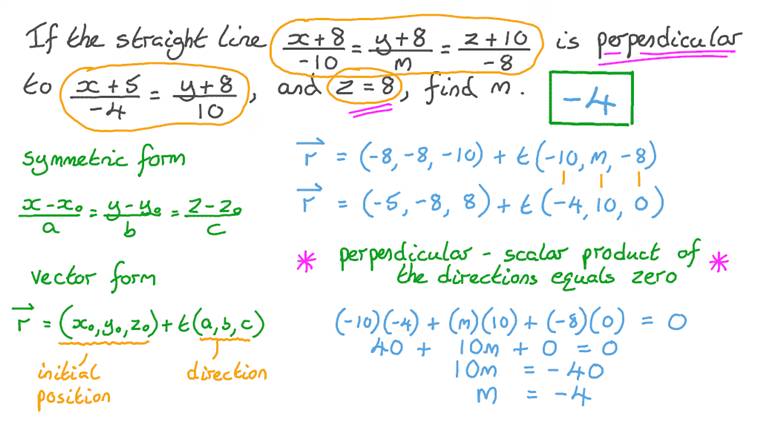 If the straight line x+8/-10 = y+8/m = z+10/-8 is perpendicular
to x+5/-4 = y+8/10, and z=8, find m. -4
symmetric form
x-x₀/a = y-y₀/b = z-z₀/c
vector form
r⃗ = (x₀,y₀,z₀)+t(a,b,c)
initial position
direction
r⃗ = (-8,-8,-10) + t(-10,m,-8)
r⃗ = (-5,-8,8) + t(-4,10,0)
* perpendicular - scalar product of
the directions equals zero *
(-10)(-4) + (m)(10) + (-8)(0) = 0
40 + 10m + 0 = 0
10m = -40
m = -4